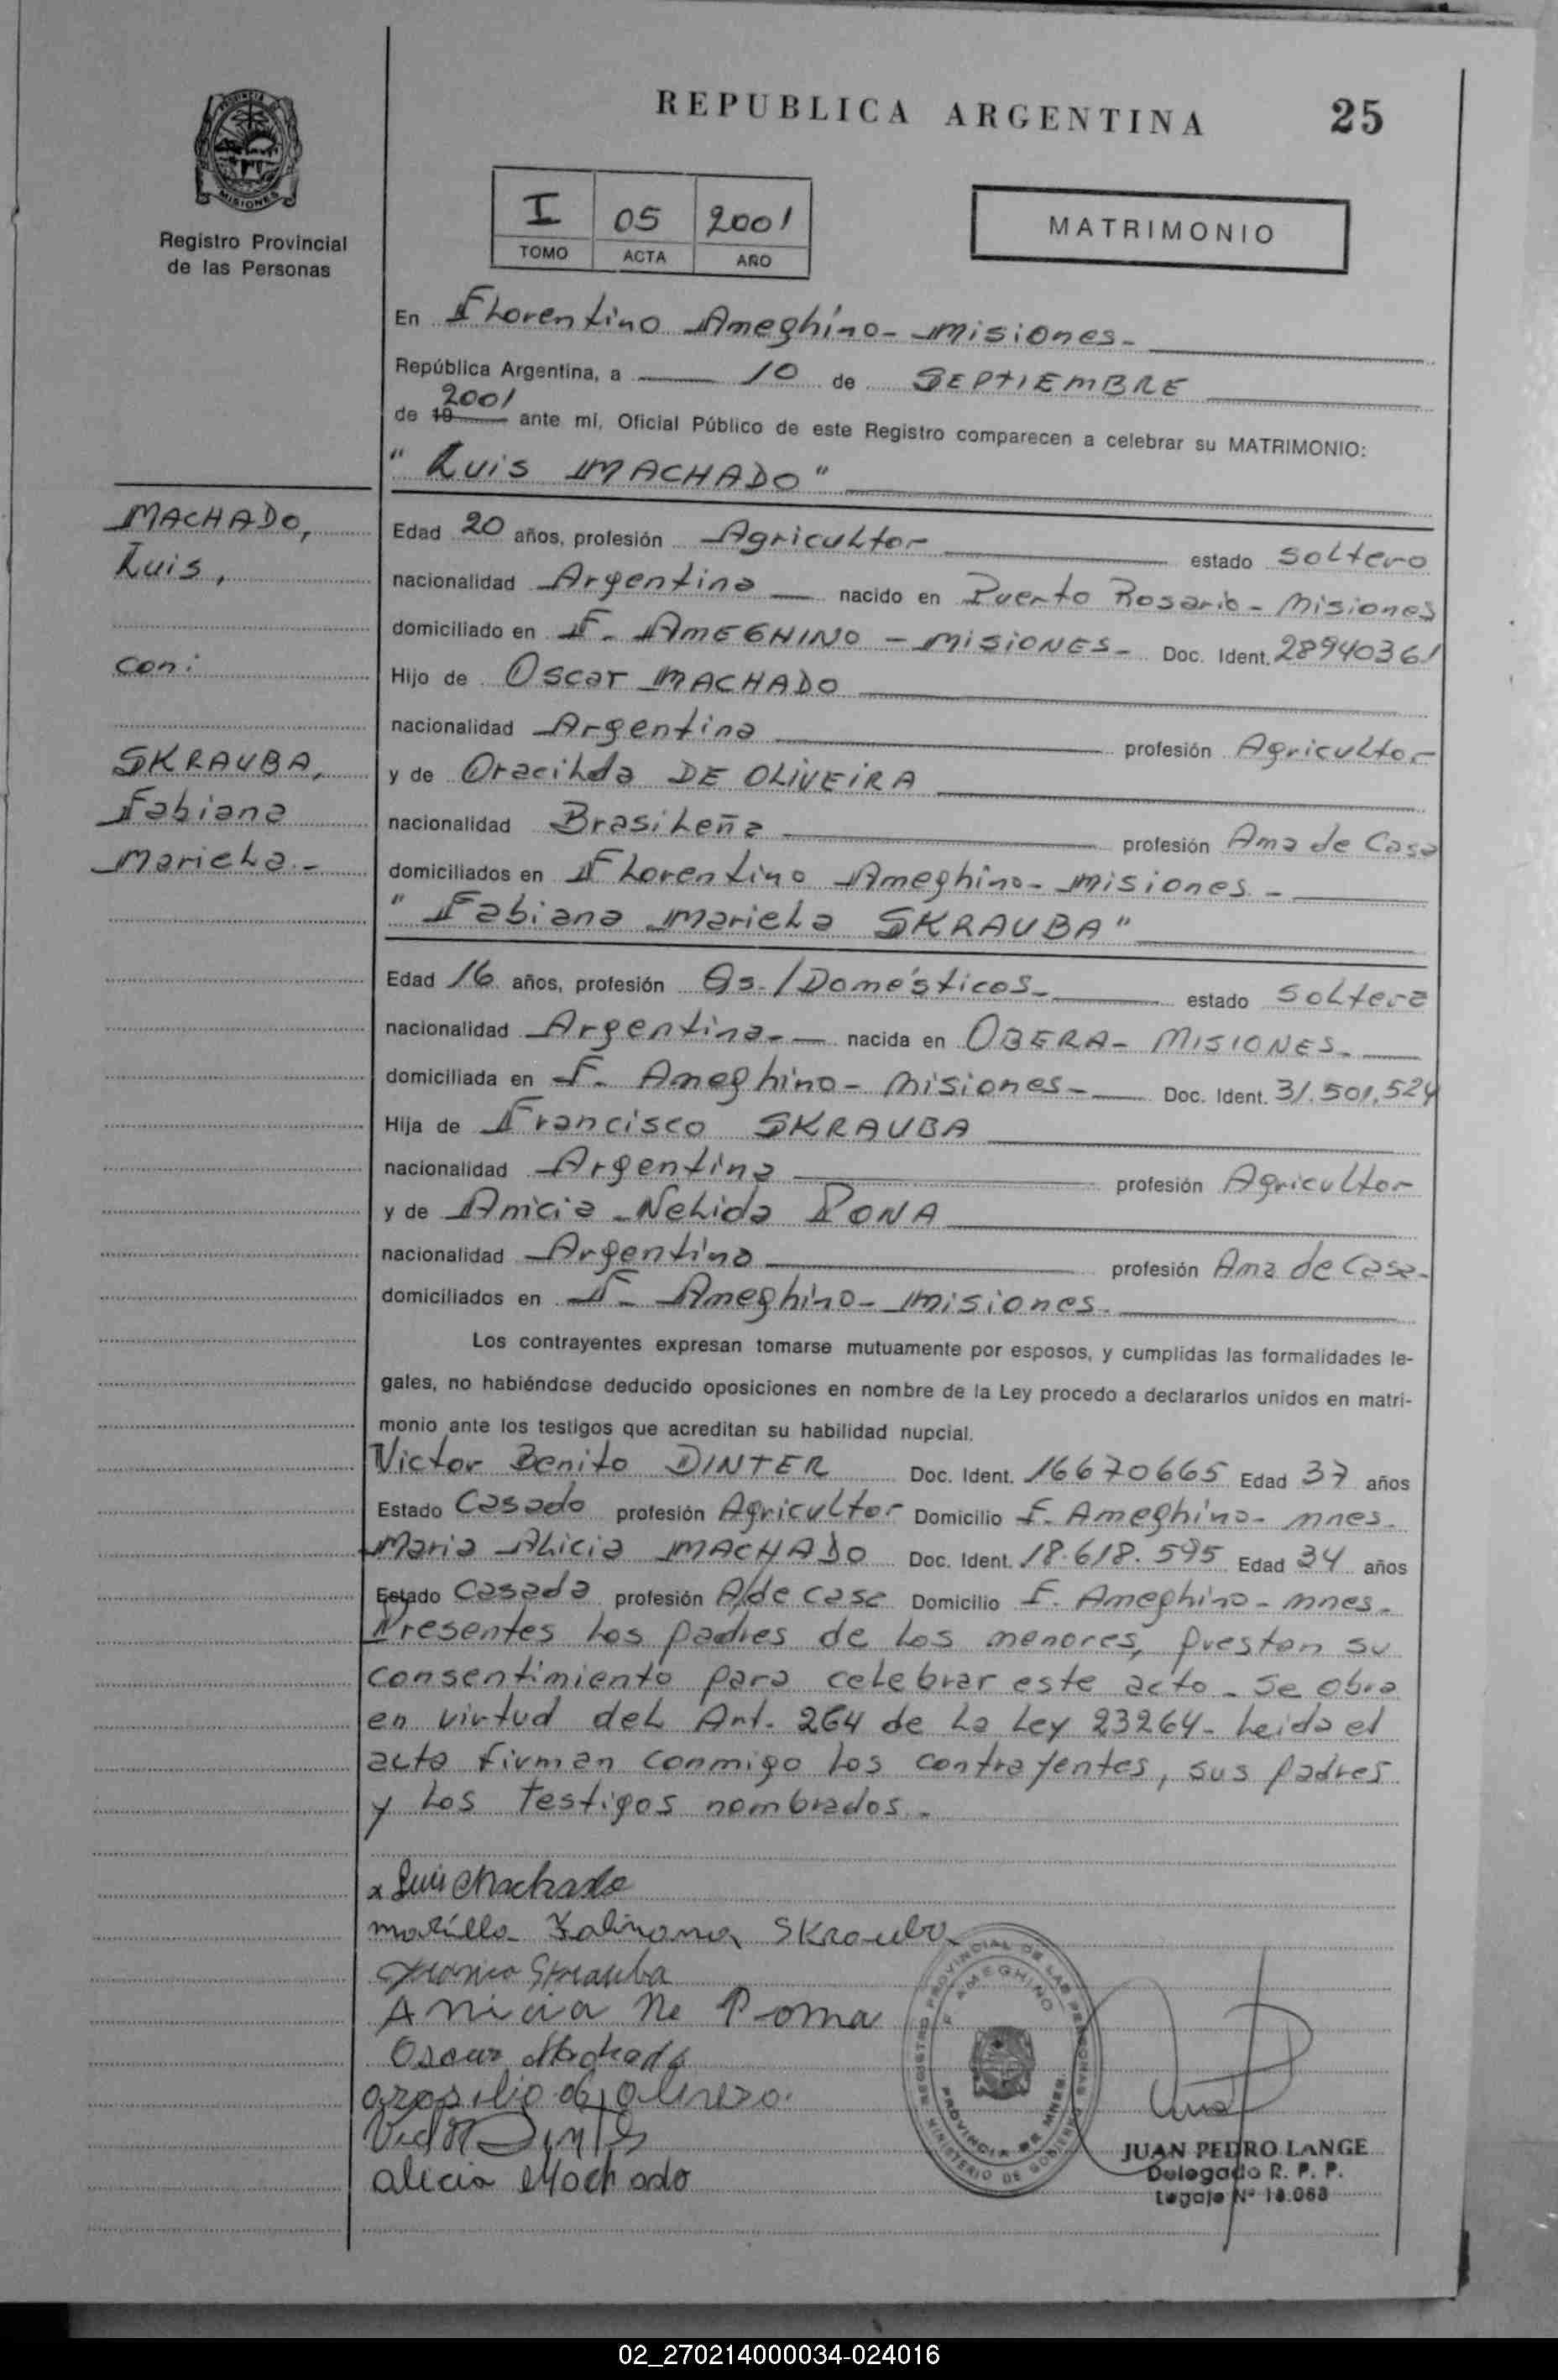 REPUBLICA ARGENTINA 25
PROVINCIA DE MISIONES
Registro Provincial
de las Personas
I 05 2001
TOMO ACTA AÑO
MATRIMONIO
En Florentino Ameghino - Misiones -
República Argentina, a 10 de SEPTIEMBRE
2001
de 19 ante mí, Oficial Público de este Registro comparecen a celebrar su MATRIMONIO:
"Luis MACHADO"
MACHADO,
Luis,
con:
SKRAUBA,
Fabiana
Mariela.-
Edad 20 años, profesión Agricultor estado Soltero
nacionalidad Argentina nacido en Puerto Rosario - Misiones
domiciliado en F. AMEGHINO - MISIONES - Doc. Ident. 28940361
Hijo de Oscar MACHADO
nacionalidad Argentina profesión Agricultor
y de Oracilda DE OLIVEIRA
nacionalidad Brasileña profesión Ama de Casa
domiciliados en Florentino Ameghino - Misiones -
"Fabiana Mariela SKRAUBA"
Edad 16 años, profesión Qs./Domésticos - estado Soltera
nacionalidad Argentina - nacida en OBERA - MISIONES -
domiciliada en F. Ameghino - Misiones - Doc. Ident. 31.501.524
Hija de Francisco SKRAUBA
nacionalidad Argentina profesión Agricultor
y de Anicia Nelida PONA
nacionalidad Argentina profesión Ama de Casa -
domiciliados en F. Ameghino - Misiones -
Los contrayentes expresan tomarse mutuamente por esposos, y cumplidas las formalidades le-
gales, no habiéndose deducido oposiciones en nombre de la Ley procedo a declararlos unidos en matri-
monio ante los testigos que acreditan su habilidad nupcial.
Victor Benito DINTER Doc. Ident. 16670665 Edad 37 años
Estado Casado profesión Agricultor Domicilio F. Ameghino - Mnes -
Maria Alicia MACHADO Doc. Ident. 18.618.595 Edad 34 años
Estado Casada profesión A/de casa Domicilio F. Ameghino - Mnes -
Presentes los padres de los menores, prestan su
consentimiento para celebrar este acto - Se obra
en virtud del Art. 264 de la Ley 23264 - Leida el
acta firman conmigo los contrayentes, sus padres
y los testigos nombrados -
x Luis Machado
Skrauba
Skrauba
Anicia Ne Poma
Oscar Machado
Victor Dinter
alicia Machado
REGISTRO PROVINCIAL DE LAS PERSONAS
F. AMEGHINO
PROVINCIA DE MNES.
MINISTERIO DE GOBIERNO
JUAN PEDRO LANGE
Delegado R. P. P.
Legajo Nº 18.068
02_270214000034-024016